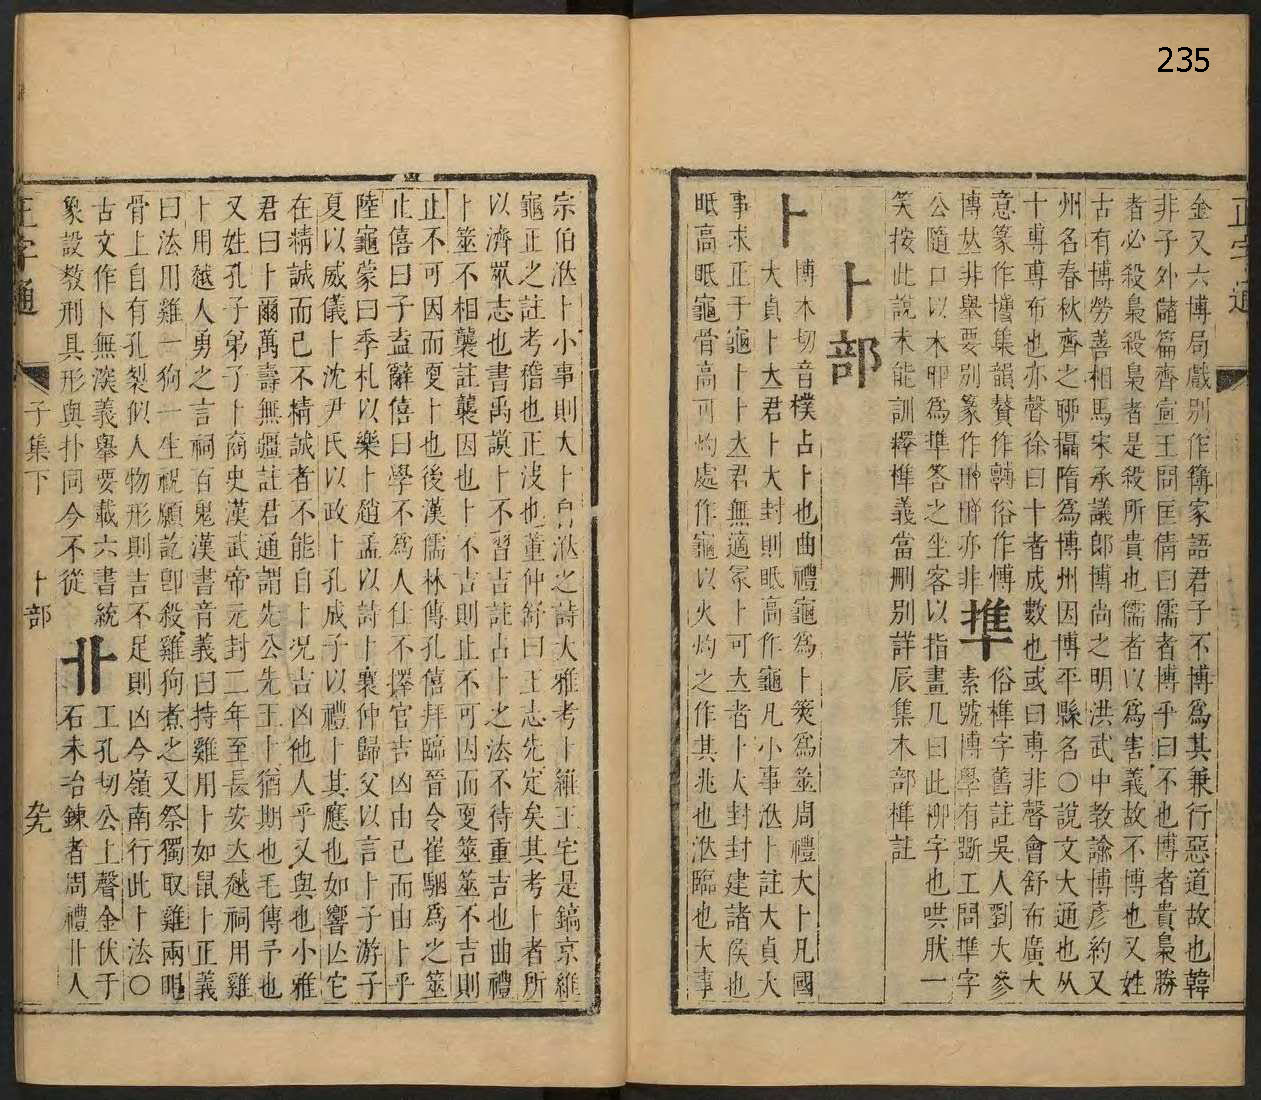 235
正字通
金又六博局戲别作簙家語君子不博爲其兼行惡道故也韓
非子外儲篇齊宣王問匡倩曰儒者博乎曰不也博者貴梟勝
者必殺梟殺梟者是殺所貴也儒者以爲害義故不博也又姓
古有博勞善相馬宋承議郎博尚之明洪武中教諭博彦約又
州名春秋齊之聊攝隋爲博州因博平縣名○說文大通也从
十尃尃布也亦聲徐曰十者成數也或曰尃非聲會舒布廣大
意篆作博集韻賛作轉俗作愽 俗榫字舊註吳人劉大參
博𠀤非舉要别篆作 亦非 𢫔 素號博學有斲工問𢫔字
公隨口以木卯爲𢫔荅之坐客以指畫几曰此柳字也哄肰一
笑按此說未能訓釋榫義當刪别詳辰集木部榫註
卜部
卜 博木切音樸占卜也曲禮龜爲卜筴爲筮周禮大卜凡國
大貞卜大君卜大封則眡高作龜凡小事涖卜註大貞大
事求正于龜卜卜大君無適冢卜可大者卜大封封建諸侯也
眡高眡龜骨高可灼處作龜以火灼之作其兆也涖臨也大事
宗伯涖卜小事則大卜自涖之詩大雅考卜維王宅是鎬京維
龜正之註考稽也正決也董仲舒曰王志先定矣其考卜者所
以濟眾志也書禹謨卜不習吉註占卜之法不待重吉也曲禮
卜筮不相襲註襲因也卜不吉則止不可因而更筮筮不吉則
止不可因而更卜也後漢儒林傳孔僖拜臨晉令崔駰爲之筮
止僖曰子盍辭僖曰學不爲人仕不擇官吉凶由己而由卜乎
陸龜蒙曰季札以樂卜趙孟以詩卜襄仲歸父以言卜子游子
夏以威儀卜沈尹氏以政卜孔成子以禮卜其應也如響𠀉它
在精誠而已不精誠者不能自卜况吉凶他人乎又與也小雅
君曰卜爾萬壽無疆註君通謂先公先王卜猶期也毛傳予也
又姓孔子弟子卜商史漢武帝元封二年至長安大越祠用雞
卜用越人勇之言祠百鬼漢書音義曰持雞用卜如鼠卜正義
曰法用雞一狗一生祝願訖卽殺雞狗煮之又祭獨取雞兩眼
骨上自有孔裂似人物形則吉不足則凶今嶺南行此卜法○
古文作卜無義舉要載六書統 卝 工孔切公上聲金伏于
象設教刑具形與扑同今不從 石未冶鍊者周禮卝人
正字通
子集下
卜部
九九